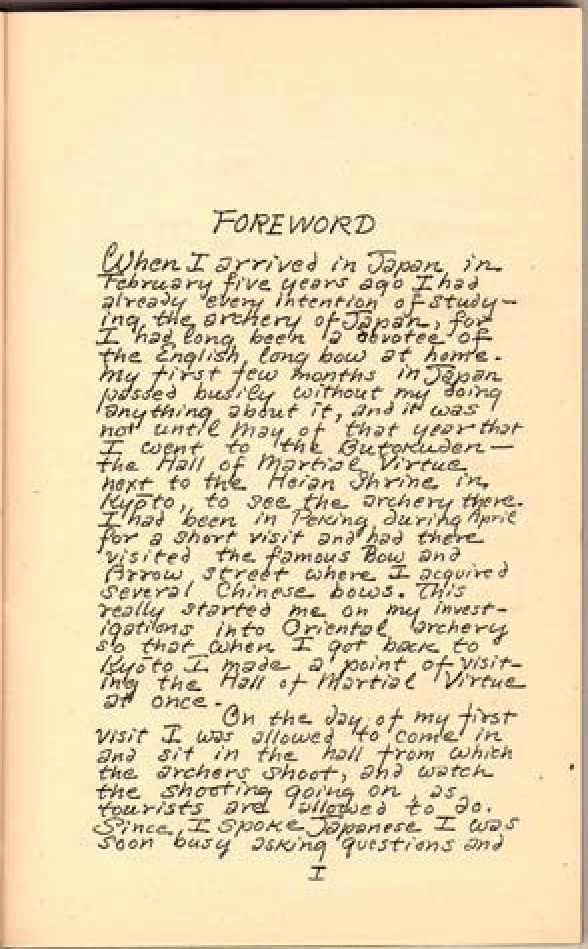 FOREWORD
When I arrived in Japan in
February five years ago I had
already every intention of study-
ing the archery of Japan, for
I had long been a devotee of
the English long bow at home.
My first few months in Japan
passed busily without my doing
anything about it, and it was
not until May of that year that
I went to the Butokuden—
the Hall of Martial Virtue
next to the Heian Shrine in
Kyōto, to see the archery there.
I had been in Peking during April
for a short visit and had there
visited the famous Bow and
Arrow Street where I acquired
several Chinese bows. This
really started me on my invest-
igations into Oriental archery
so that when I got back to
Kyōto I made a point of visit-
ing the Hall of Martial Virtue
at once.
On the day of my first
visit I was allowed to come in
and sit in the hall from which
the archers shoot, and watch
the shooting going on, as
tourists are allowed to do.
Since I spoke Japanese I was
soon busy asking questions and
I